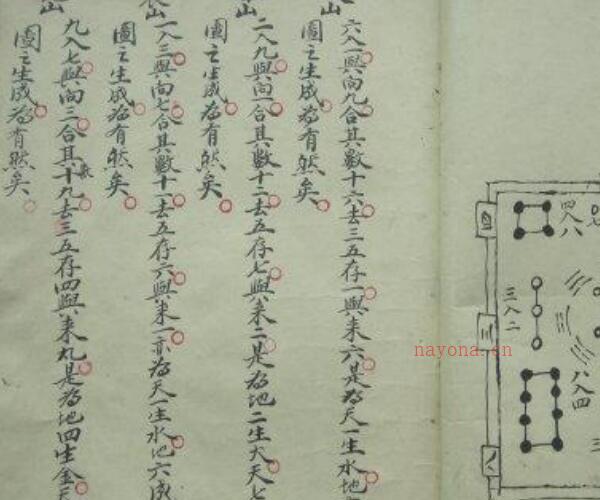 山
六入一與向九合其數十六去三五存一與來六是為天一生水地
圖之生成為有然矣
山
二入九與向一合其數十二去五存七與來二是為地二生火天七
圖之生成為有然矣
山
一入三與向七合其數十一去五存六與來一亦為天一生水地六成
圖之生成為有然矣
九入七與向三合其數十九去三五存四與來九是為地四生金天
圖之生成為有然矣
四入八
三入二
八入四
三
nayona.cn